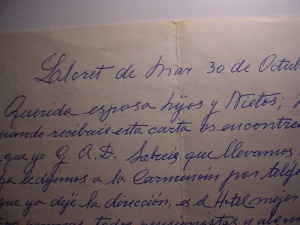 Lloret de Mar 30 de Octub
Querida esposa hijos y Nietos;
uando recibais esta carta os encontre
que yo G. A. D. Sabreis que llevamos
ya le dijimos a la Carminam por teléfo
que ya dije la dirección, es el Hotel mejor
todos pensionistas y